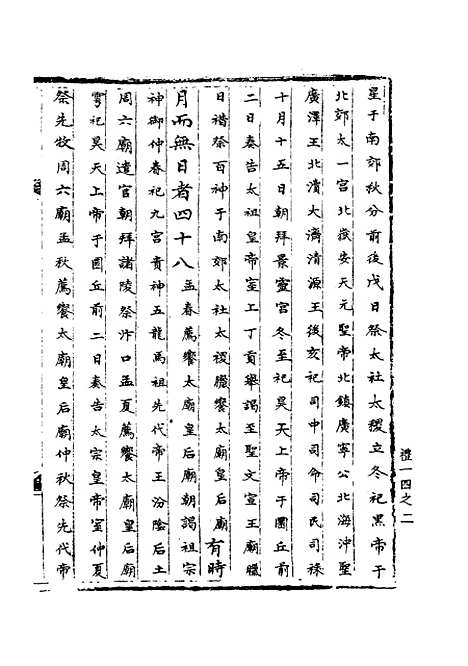 星于南郊秋分前後戊日祭太社太稷立冬祀黑帝于
北郊太一宮北嶽安天元聖帝北鎮廣寧公北海沖聖
廣澤王北瀆大濟清源王後亥祀司中司命司民司祿
十月十五日朝拜景靈宮冬至祀昊天上帝于圜丘前
二日奏告太祖皇帝室上丁貢舉謁至聖文宣王廟臘
日禮祭百神于南郊太社太稷臘饗太廟皇后廟有時
月而無日者四十八孟春薦饗太廟皇后廟朝謁祖宗
神御仲春祀九宮貴神五龍馬祖先代帝王汾陰后土
周六廟遣官朝拜諸陵祭汴口孟夏薦饗太廟皇后廟
雩祀昊天上帝于圜丘前二日奏告太宗皇帝室仲夏
祭先牧周六廟孟秋薦饗太廟皇后廟仲秋祭先代帝
禮一四之二